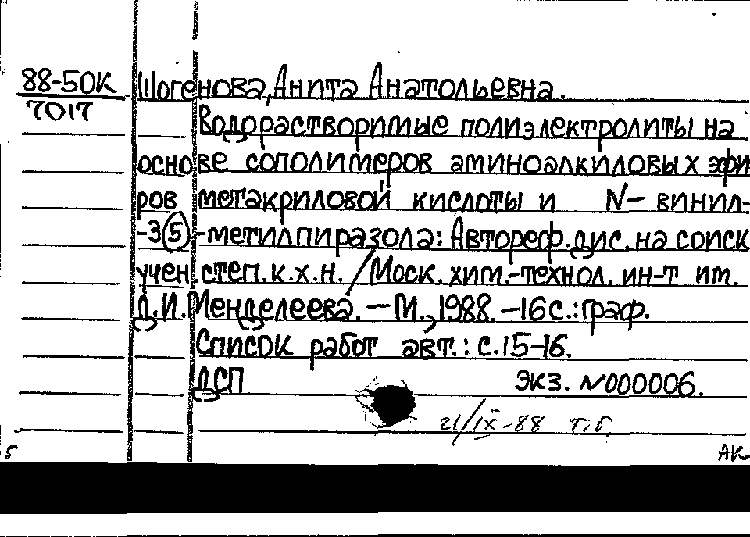 88-50К Шогенова, Анита Анатольевна.
7017
Водорастворимые полиэлектролиты на
основе сополимеров аминоалкиловых эфи
ров метакриловой кислоты и N- винил-
-3(5)-метилпиразола: Автореф. дис. на соиск
учен. степ. к.х.н. / Моск. хим.-технол. ин-т им.
Д.И. Менделеева. - М., 1988. - 16 с.: граф.
Список работ авт.: с. 15-16.
ДСП экз. N000006.
21/IX-88 т.г.
5 АК-